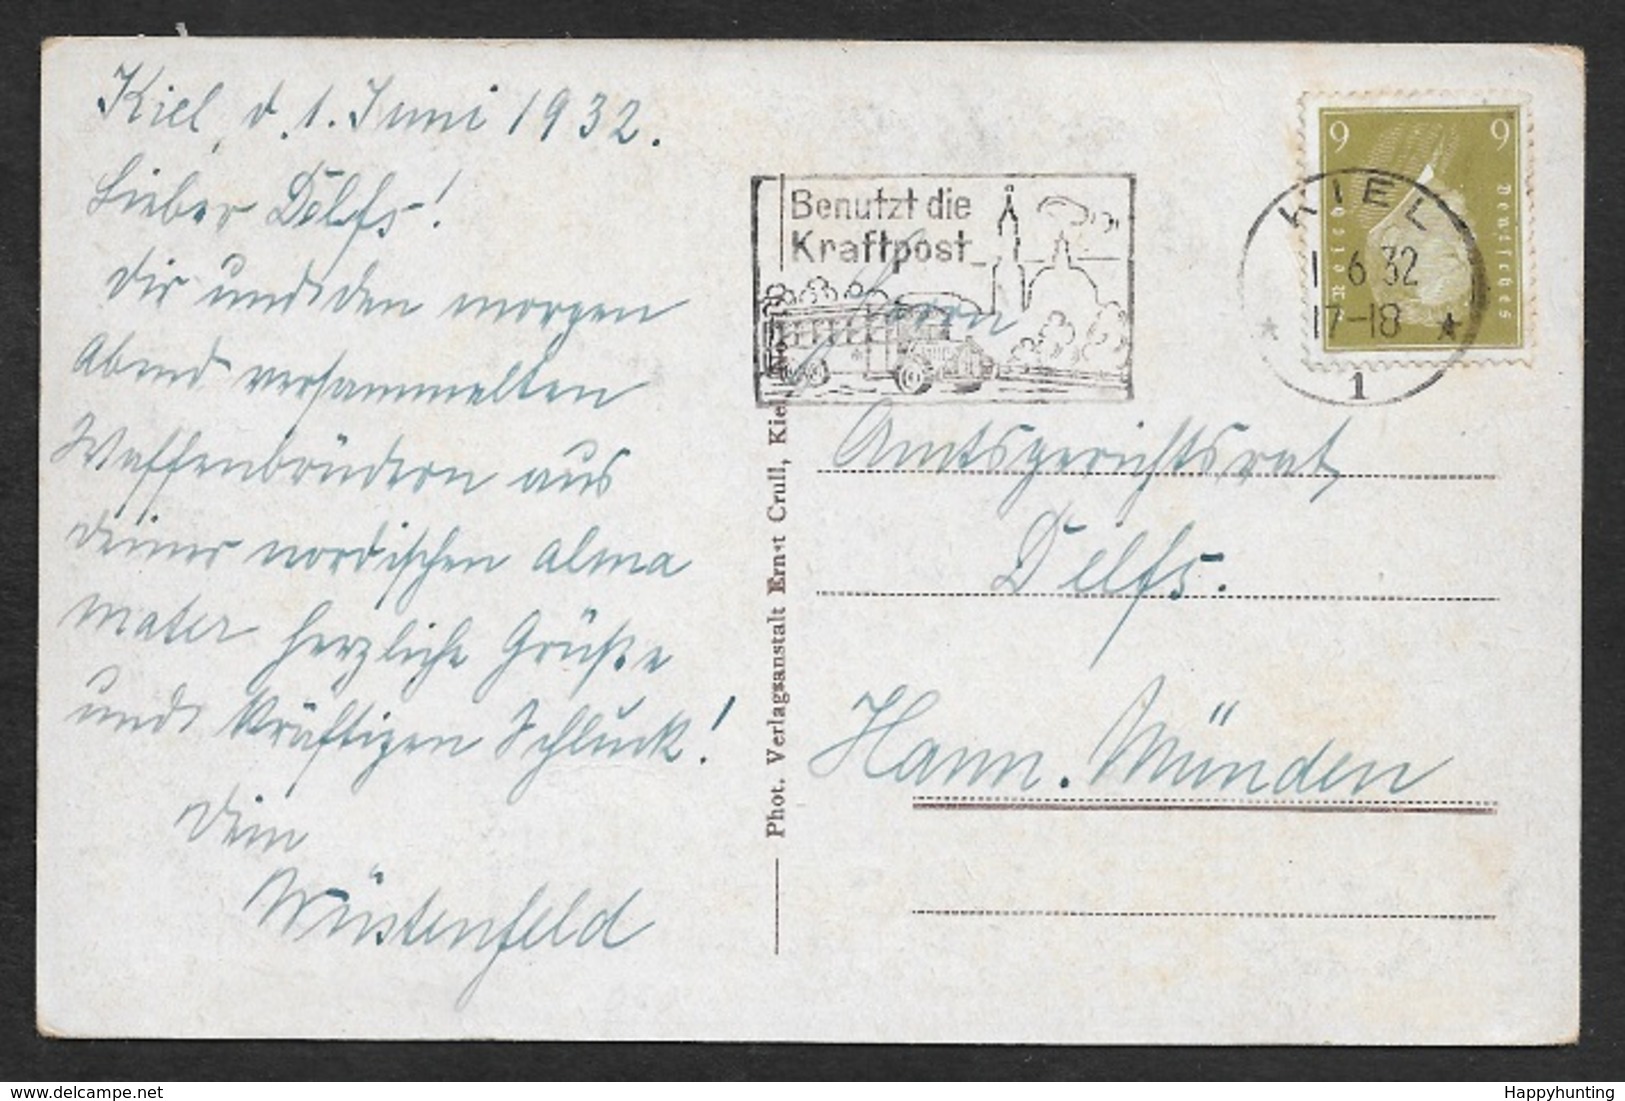 Kiel, d. 1. Juni 1932.
Lieber Delfs!
Dir und den morgen
Abend versammelten
Waffenbrüdern aus
deiner nordischen alma
mater herzliche Grüße
und kräftigen Schluck!
Dein
Wüstenfeld
Phot. Verlagsanstalt Ernst Crull, Kiel
Benutzt die
Kraftpost
9 9
Deutsches
Reich
KIEL
1 6 32
17-18
1
Herrn
Amtsgerichtsrat
Delfs.
Hann. Münden
Happyhunting